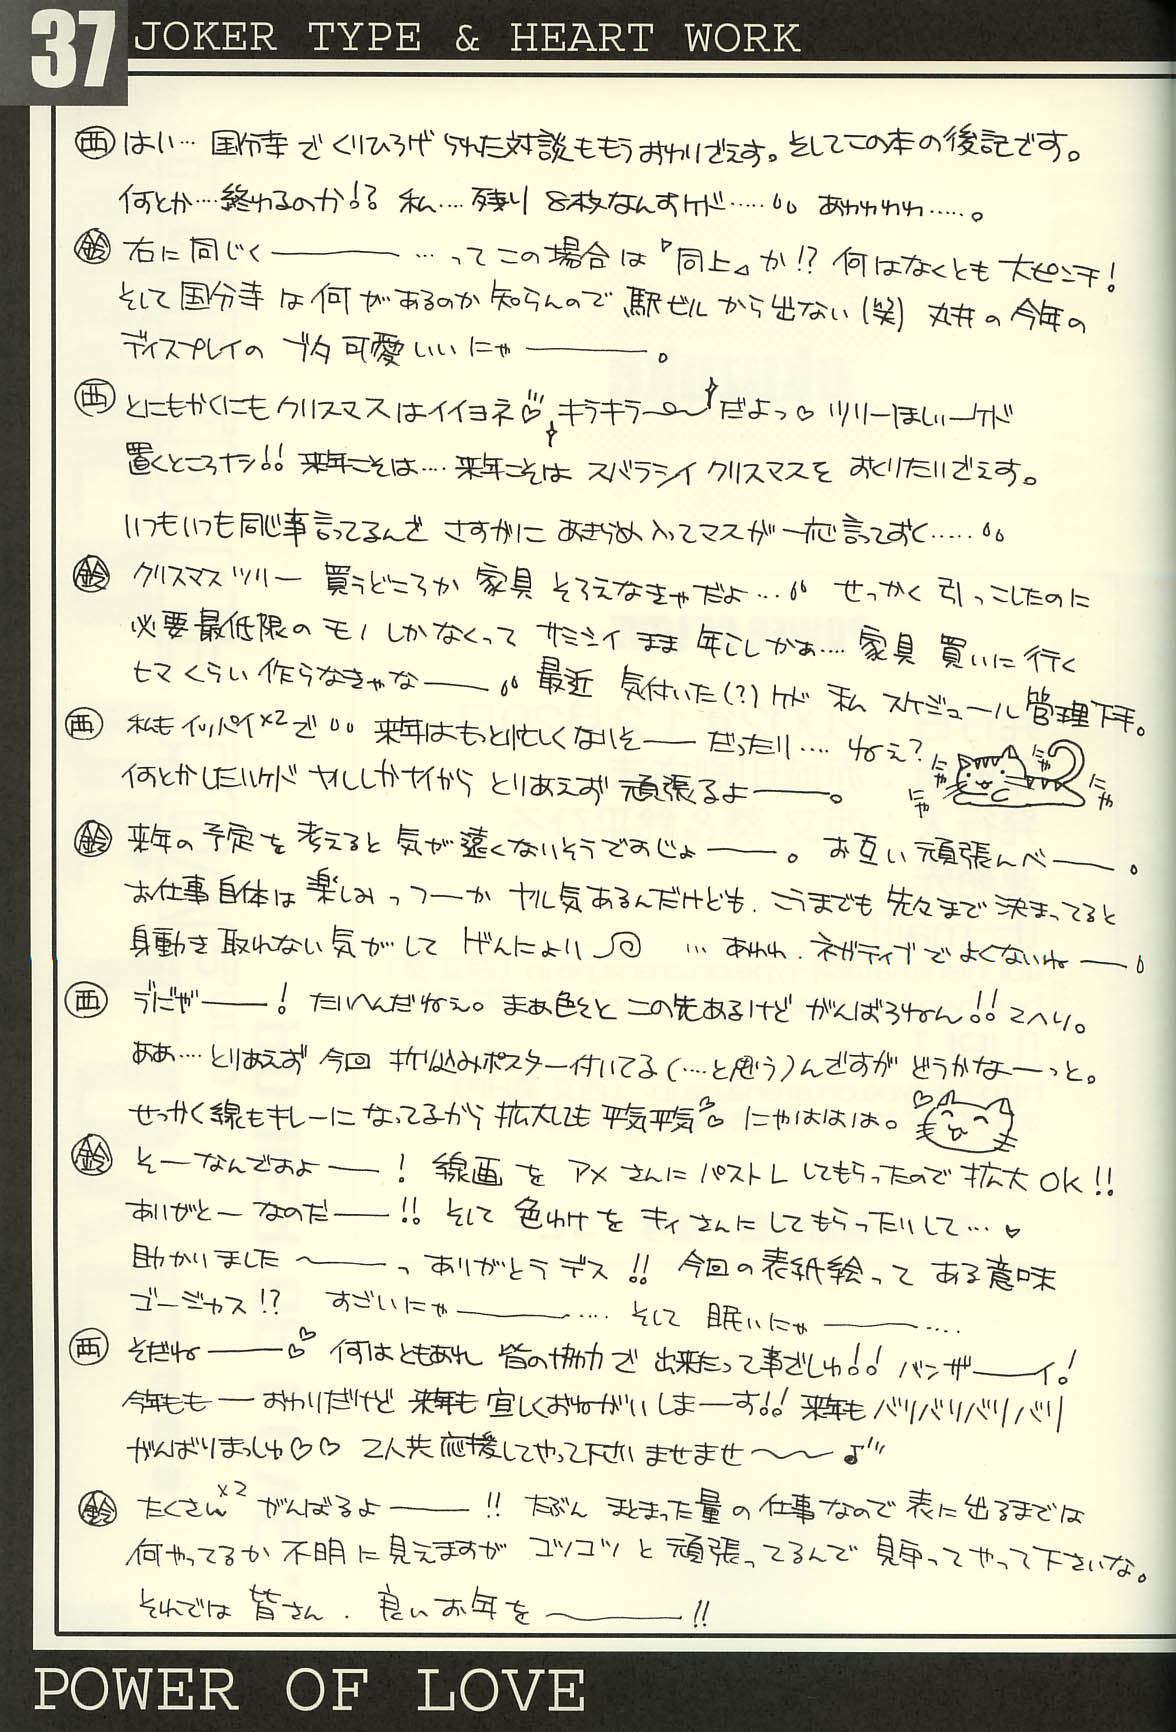 37 JOKER TYPE & HEART WORK
西 はい… 国分寺でくりひろげられた対談ももうおわりざえす。そしてこの本の後記です。
何とか…終わるのか!? 私…. 残り 8枚なんすケド….. あわわわわ…..。
鈴 右に同じく―――― …ってこの場合は『同上』か!? 何はなくとも大ピンチ!
そして国分寺は何があるのか知らんので駅ビルから出ない(笑) 丸井の今年の
ディスプレイの ブタ可愛いいにゃ――――。
西 とにもかくにもクリスマスはイイヨネ♡ キラキラ〜 だよっ♡ ツリーほしいーケド
置くところナシ!! 来年こそは…. 来年こそは スバラシイ クリスマスを おくりたいざえす。
いつもいつも同じ事言ってるんで さすがに あきらめ入ってマスが一応言っておく…..
鈴 クリスマスツリー 買うどころか 家具 そろえなきゃだよ… せっかく引っこしたのに
必要最低限のモノしかなくって サミシイまま 年こしかぁ…. 家具 買いに行く
ヒマくらい作らなきゃな―― 最近 気付いた(?)ケド 私 スケジュール管理下手。
西 私もイッパイ×2で 来年はもっと忙しくなりそ―― だったり…. ねえ?
何とかしたいケド ヤルしかナイから とりあえず 頑張るよ――――。
にゃ にゃ にゃ にゃ
鈴 来年の予定を考えると気が遠くないそうですじょ――――。 お互い頑張んべ――。
お仕事自体は楽しみっつーか ヤル気あるんだけども、こうまでも先々まで決まってると
身動き取れない気がして げんにょり … あわわ、ネガティブでよくないね――
西 うにゃ――! たいへんだねえ。まあ色々と この先あるけど がんばろねん!! てへり。
ああ…. とりあえず 今回 折り込みポスター付いてる(…と思う)んですが どうかなーっと。
せっかく線もキレーになってるから 拡大しても 平気平気♡ にゃははは。
鈴 そーなんですよ――! 線画を アメさんに パストレしてもらったので 拡大OK!!
ありがとーなのだ――!! そして 色わけを キィさんにしてもらったりして…♡
助かりました〜――っ ありがとうデス!! 今回の表紙絵って ある意味
ゴージャス!? すごいにゃ――――…. そして 眠いにゃ――――….
西 そだね――――♡ 何はともあれ 皆の協力で 出来たって事でしゅ!! バンザ――イ!
今年もも―おわりだけど 来年も宜しくおねがいしま―す!! 来年もバリバリバリバリ
がんばりまっしゅ♡♡ 2人共 応援してやって下さいませませ〜〜♪
鈴 たくさん×2 がんばるよ――――!! たぶん まとまった量の仕事なので 表に出るまでは
何やってるか不明に見えますが コツコツと頑張ってるんで 見守ってやって下さいな。
それでは 皆さん、良いお年を――――!!
POWER OF LOVE